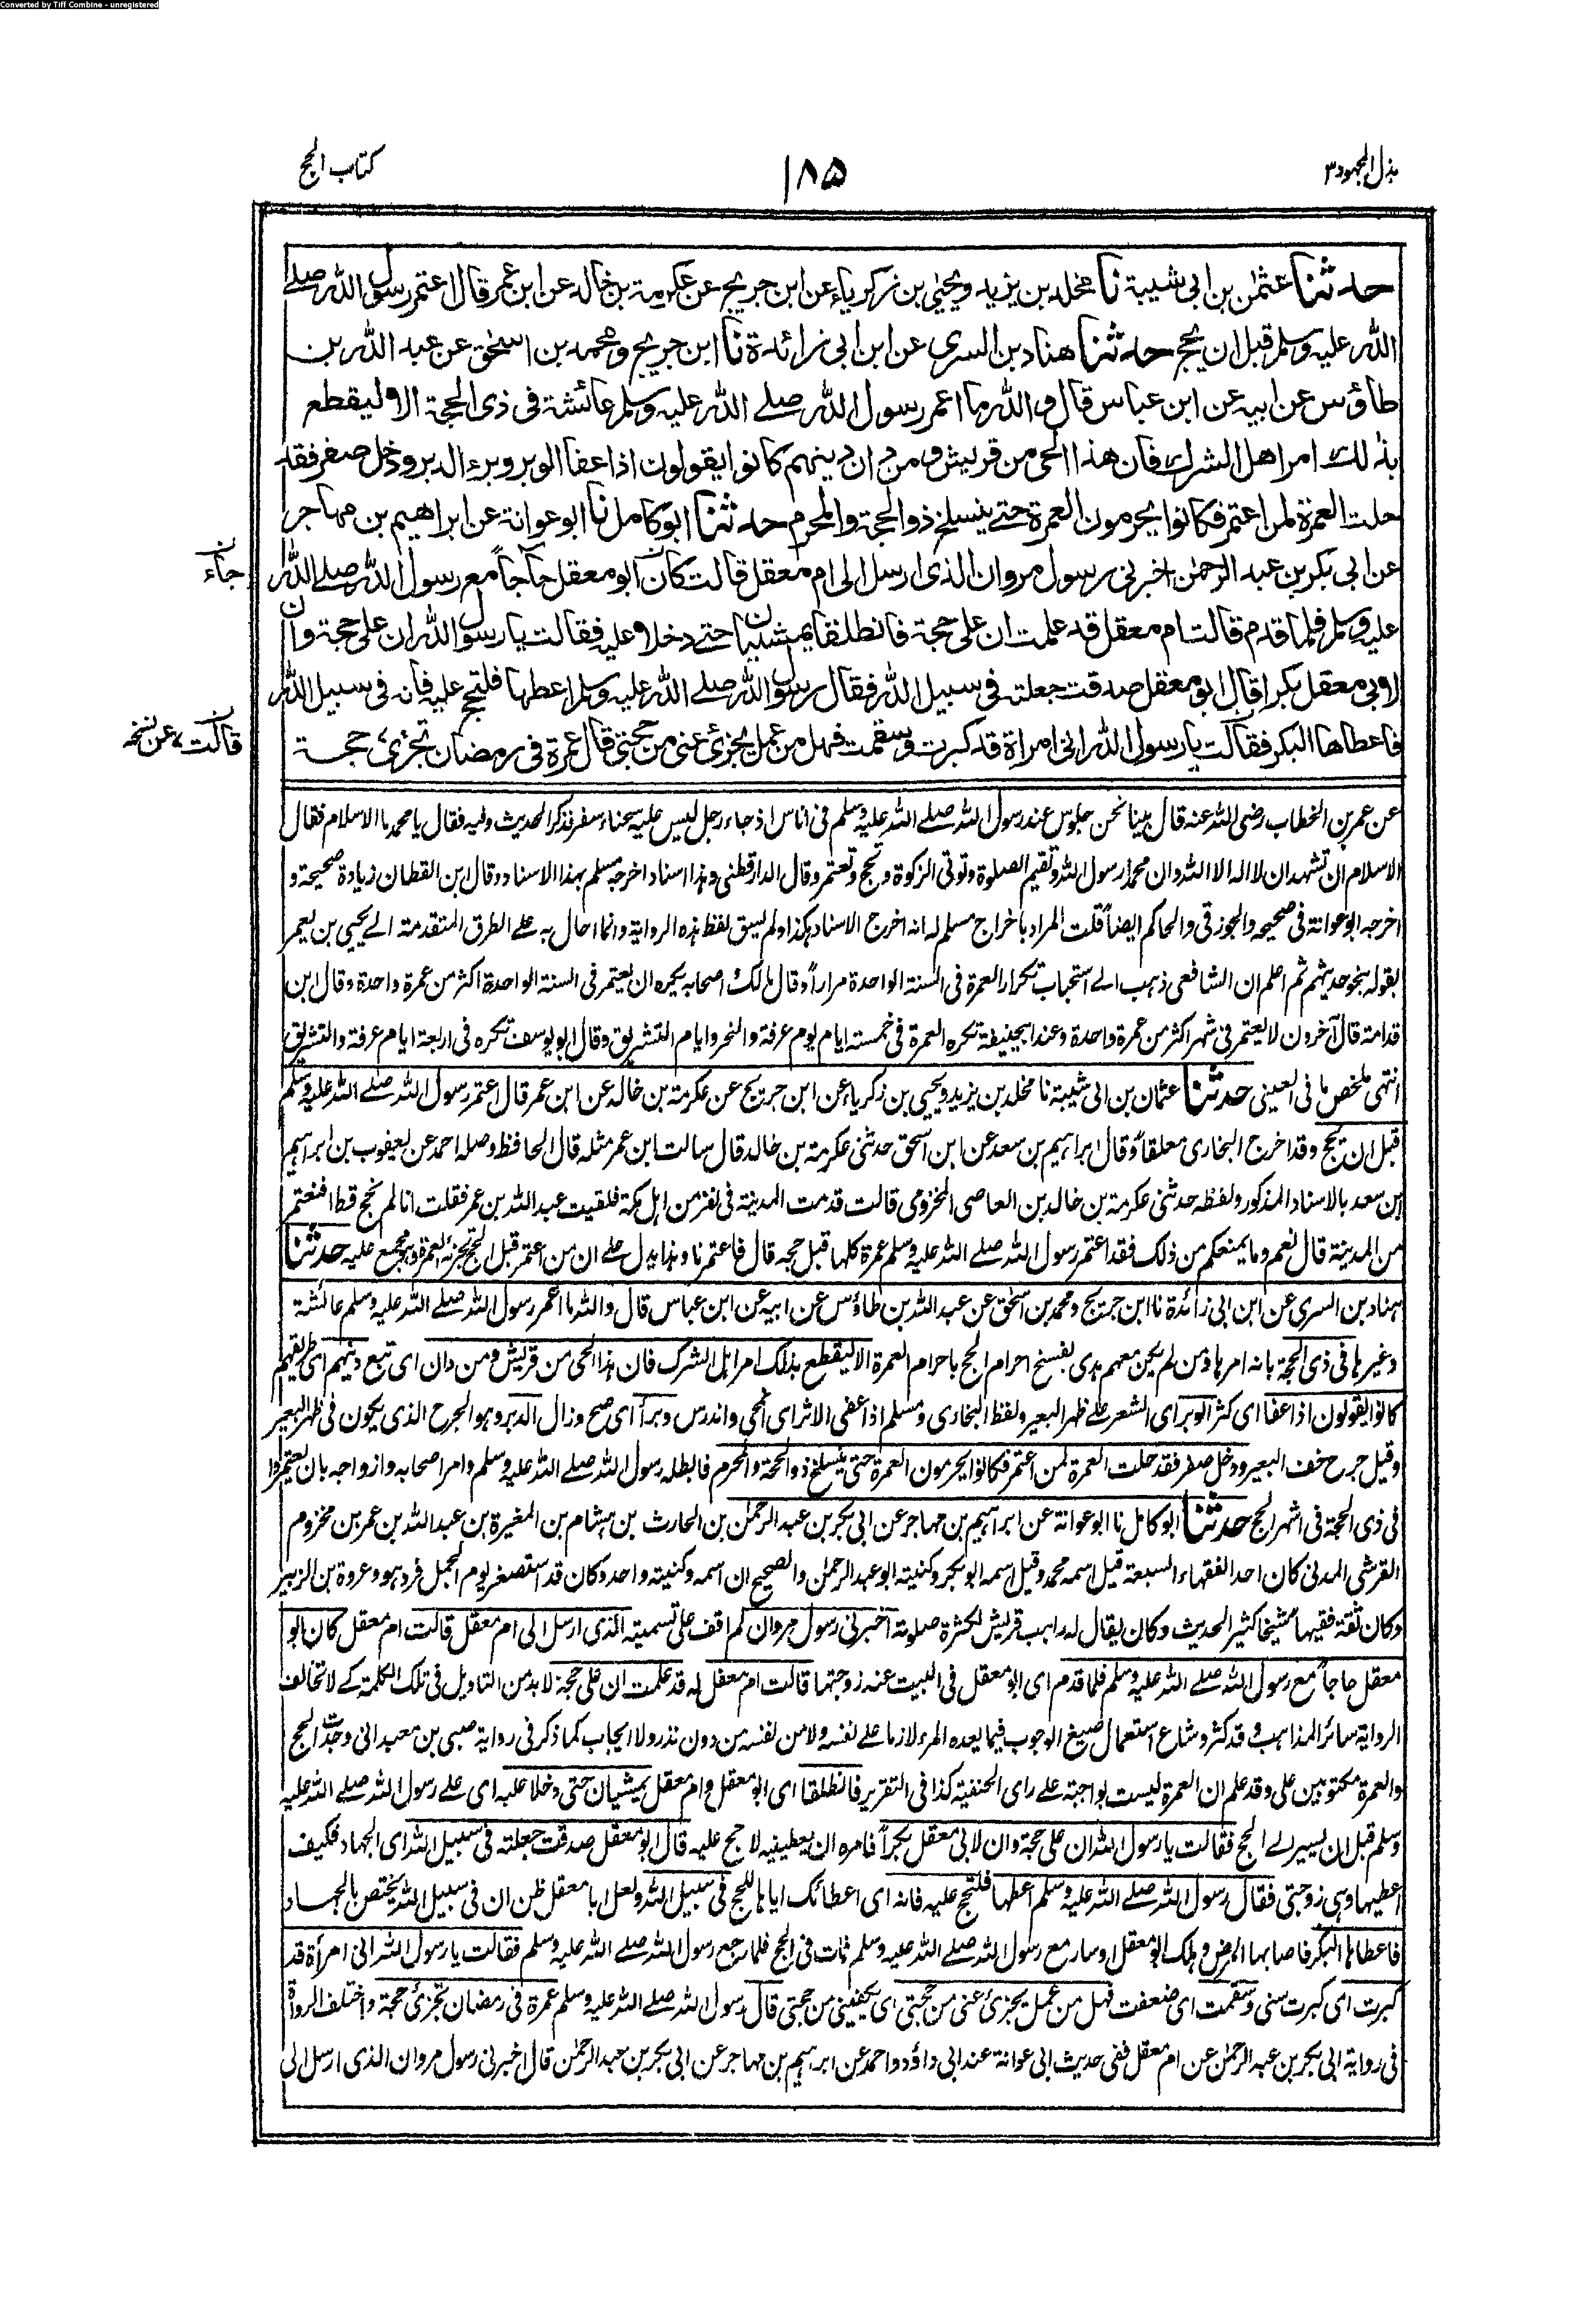 Converted by Tiff Combine - unregistered
بذل المجهود ٣
١٨٥
كتاب الحج
حدثنا عثمٰن بن ابى شيبة نا مخلد بن يزيد ويحيٰى بن زكرياء عن ابن جريج عن عكرمة بن خالد عن ابن عمر قال اعتمر رسول الله صلے
الله عليه وسلم قبل ان يحج حدثنا هناد بن السرى عن ابن ابى زائدة نا ابن جريج ومحمد بن اسحٰق عن عبد الله بن
طاؤس عن ابيه عن ابن عباس قال والله ما اعمر رسول الله صلے الله عليه وسلم عائشة فى ذى الحجة الا ليقطع
بذلك امر اهل الشرك فان هذا الحى من قريش ومن دان دينهم كانوا يقولون اذا عفا الوبر وبرء الدبر ودخل صفر فقد
حلت العمرة لمن اعتمر فكانوا يحرمون العمرة حتے ينسلخ ذو الحجة والمحرم حدثنا ابو كامل نا ابو عوانة عن ابراهيم بن مهاجر
عن ابى بكر بن عبد الرحمٰن اخبرنى رسول مروان الذى ارسل الى ام معقل قالت كان ابو معقل حاجاً مع رسول الله صلے الله
جاء ن
عليه وسلم فلما قدم قالت ام معقل قد علمت ان على حجة فانطلقا يمشيان حتے دخلا عليه فقالت يا رسول الله ان على حجة وان
لابى معقل بكرا قال ابو معقل صدقت جعلته فى سبيل الله فقال رسول الله صلے الله عليه وسلم اعطها فلتحج عليه فانه فى سبيل الله
فاعطاها البكر فقالت يا رسول الله انى امراة قد كبرت وسقمت فهل من عمل يجزئ عنى من حجتى قال عمرة فى رمضان تجزئ حجة
قالت ن عن نسخه
عن عمر بن الخطاب رضى الله عنه قال بينا نحن جلوس عند رسول الله صلے الله عليه وسلم فى اناس اذ جاء رجل ليس عليه عناء سفر فذكر الحديث وفيه فقال يا محمد ما الاسلام فقال
الاسلام ان تشهد ان لا اله الا الله وان محمدا رسول الله وتقيم الصلوة وتوتى الزكوة وتحج وتعتمر وقال الدارقطنى وهذا اسناد اخرجه مسلم بهذا الاسناد وقال ابن القطان زيادة صحيحة و
اخرجه ابو عوانة فى صحيحه والجوزقى والحاكم ايضاً قلت المراد باخراج مسلم له انه اخرج الاسناد هكذا ولم يسق لفظ هذه الرواية وانما احال به علے الطرق المتقدمة الے يحيى بن يعمر
بقوله بنحو حديثهم ثم اعلم ان الشافعى ذهب الے استحباب تكرار العمرة فى السنة الواحدة مراراً وقال مالك واصحابه يكره ان يعتمر فى السنة الواحدة اكثر من عمرة واحدة وقال ابن
قدامة قال آخرون لا يعتمر فى شهر اكثر من عمرة واحدة وعند ابيحنيفة تكره العمرة فى خمسة ايام يوم عرفة والنحر وايام التشريق وقال ابو يوسف تكره فى اربعة ايام عرفة والتشريق
انتهى ملخص ما فى العينى حدثنا عثمان بن ابى شيبة نا مخلد بن يزيد ويحيى بن زكرياء عن ابن جريج عن عكرمة بن خالد عن ابن عمر قال اعتمر رسول الله صلے الله عليه وسلم
قبل ان يحج وقد اخرج البخارى معلقاً وقال ابراهيم بن سعد عن ابن اسحق حدثنى عكرمة بن خالد قال سالت ابن عمر مثله قال الحافظ وصله احمد عن يعقوب بن ابراهيم
بن سعد بالاسناد المذكور ولفظه حدثنى عكرمة بن خالد بن العاصى المخزومى قالت قدمت المدينة فى نفر من اهل مكة فلقيت عبد الله بن عمر فقلت انا لم نحج قط افنعتمر
من المدينة قال نعم وما يمنعكم من ذلك فقد اعتمر رسول الله صلے الله عليه وسلم عمرة كلها قبل حجه قال فاعتمرنا وهذا يدل علے ان من اعتمر قبل الحج تجزئه العمرة وهو مجمع عليه حدثنا
هناد بن السرى عن ابن ابى زائدة نا ابن جريج ومحمد بن اسحٰق عن عبد الله بن طاؤس عن ابيه عن ابن عباس قال والله ما اعمر رسول الله صلے الله عليه وسلم عائشة
وغيرها فى ذى الحجة بانه امرها ومن لم يكن معهم هدى بفسخ احرام الحج باحرام العمرة الا ليقطع بذلك امر اهل الشرك فان هذا الحى من قريش ومن دان اى تبع دينهم اى طريقهم
كانوا يقولون اذا عفا اى كثر الوبر اى الشعر علے ظهر البعير ولفظ البخارى ومسلم اذ اعفى الاثر اى انمحى واندرس وبرأ اى صح وزال الدبر وهو الجرح الذى يكون فى ظهر البعير
وقيل جرح خف البعير ودخل صفر فقد حلت العمرة لمن اعتمر فكانوا يحرمون العمرة حتى ينسلخ ذو الحجة والمحرم فابطله رسول الله صلے الله عليه وسلم وامر اصحابه وازواجه بان يعتمروا
فى ذى الحجة فى اشهر الحج حدثنا ابو كامل نا ابو عوانة عن ابراهيم بن مهاجر عن ابى بكر بن عبد الرحمٰن بن الحارث بن هشام بن المغيرة بن عبد الله بن عمر بن مخزوم
القرشى المدنى كان احد الفقهاء السبعة قيل اسمه محمد وقيل اسمه ابو بكر وكنيته ابو عبد الرحمٰن والصحيح ان اسمه وكنيته واحد وكان قد استصغر يوم الجمل فرد هو وعروة بن الزبير
وكان ثقة فقيها شيخا كثير الحديث وكان يقال له راهب قريش لكثرة صلوته اخبرنى رسول مروان لم اقف على تسميته الذى ارسل الى ام معقل قالت ام معقل كان ابو
معقل حاجاً مع رسول الله صلے الله عليه وسلم فلما قدم اى ابو معقل فى البيت عنه زوجتها قالت ام معقل له قد علمت ان على حجة لابد من التاويل فى تلك الكلمة كے لا تخالف
الرواية سائر المذاهب وقد كثر وشاع استعمال صيغ الوجوب فيما يعده المرء لازما علے نفسه ولا من نفسه من دون نذر ولا ايجاب كما ذكر فى رواية صبى بن معبد انى وجدت الحج
والعمرة مكتوبين على وقد علم ان العمرة ليست بواجبة علے راى الحنفية كذا فى التقرير فانطلقا اى ابو معقل وام معقل يمشيان حتى دخلا عليه اى علے رسول الله صلے الله عليه
وسلم قبل ان يسير الے الحج فقالت يا رسول الله ان على حجة وان لابى معقل بكراً فامره ان يعطينيه لاحج عليه قال ابو معقل صدقت جعلته فى سبيل الله اى الجهاد فكيف
اعطيها وهى زوجتى فقال رسول الله صلے الله عليه وسلم اعطها فلتحج عليه فانه اى اعطائك اياها للحج فى سبيل الله ولعل ابا معقل ظن ان فى سبيل الله يختص بالجهاد
فاعطاها البكر فاصابها المرض وهلك ابو معقل او سار مع رسول الله صلے الله عليه وسلم فمات فى الحج فلما رجع رسول الله صلے الله عليه وسلم فقالت يا رسول الله انى امرأة قد
كبرت اى كبرت سنى وسقمت اى ضعفت فهل من عمل يجزئ عنى من حجتى اى يكفينى من حجتى قال رسول الله صلے الله عليه وسلم عمرة فى رمضان تجزئ حجة واختلف الرواة
فى رواية ابى بكر بن عبد الرحمٰن عن ام معقل ففى حديث ابى عوانة عند ابى داؤد واحمد عن ابراهيم بن مهاجر عن ابى بكر بن عبد الرحمٰن قال اخبرنى رسول مروان الذى ارسل الى